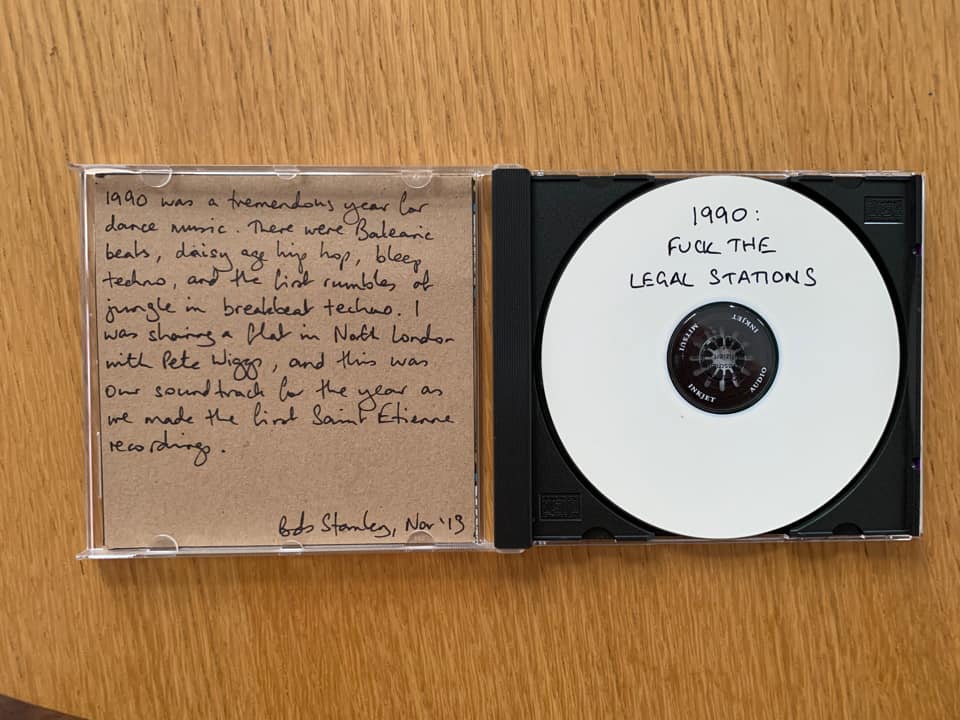 1990 was a tremendous year for
dance music. There were Balearic
beats, daisy age hip hop, bleep
techno, and the first rumbles of
jungle in breakbeat techno. I
was sharing a flat in North London
with Pete Wiggs, and this was
our soundtrack for the year as
we made the first Saint Etienne
recordings.
Bob Stanley, Nov '19
1990:
FUCK THE
LEGAL STATIONS
MITSUI
INKJET
INKJET
AUDIO